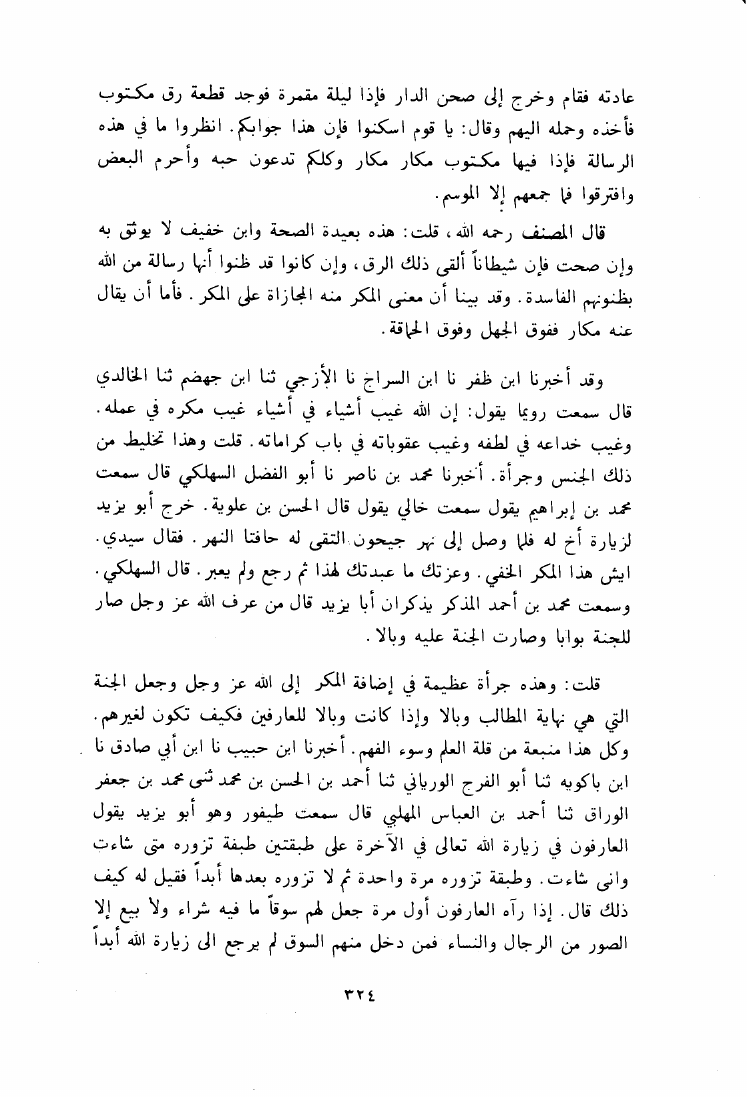 عادته فقام وخرج إلى صحن الدار فإذا ليلة مقمرة فوجد قطعة رق مكتوب
فأخذه وحمله اليهم وقال: يا قوم اسكنوا فإن هذا جوابكم. انظروا ما في هذه
الرسالة فإذا فيها مكتوب مكار مكار وكلكم تدعون حبه وأحرم البعض
وافترقوا فما جمعهم إلا الموسم.
قال المصنف رحمه الله، قلت: هذه بعيدة الصحة وابن خفيف لا يوثق به
وإن صحت فإن شيطاناً ألقى ذلك الرق، وإن كانوا قد ظنوا أنها رسالة من الله
بظنونهم الفاسدة. وقد بينا أن معنى المكر منه المجازاة على المكر. فأما أن يقال
عنه مكار ففوق الجهل وفوق الحماقة.
وقد أخبرنا ابن ظفر نا ابن السراج نا الأزجي ثنا ابن جهضم ثنا الخالدي
قال سمعت رويما يقول: إن الله غيب أشياء في أشياء غيب مكره في عمله.
وغيب خداعه في لطفه وغيب عقوباته في باب كراماته. قلت وهذا تخليط من
ذلك الجنس وجرأة. أخبرنا محمد بن ناصر نا أبو الفضل السهلكي قال سمعت
محمد بن إبراهيم يقول سمعت خالي يقول قال الحسن بن علوية. خرج أبو يزيد
لزيارة أخ له فلما وصل إلى نهر جيحون التقى له حافتا النهر. فقال سيدي.
ايش هذا المكر الخفي. وعزتك ما عبدتك لهذا ثم رجع ولم يعبر. قال السهلكي.
وسمعت محمد بن أحمد المذكر يذكران أبا يزيد قال من عرف الله عز وجل صار
للجنة بوابا وصارت الجنة عليه وبالا.
قلت: وهذه جرأة عظيمة في إضافة المكر إلى الله عز وجل وجعل الجنة
التي هي نهاية المطالب وبالا وإذا كانت وبالا للعارفين فكيف تكون لغيرهم.
وكل هذا منبعة من قلة العلم وسوء الفهم. أخبرنا ابن حبيب نا ابن أبي صادق نا
ابن باكويه ثنا أبو الفرج الورياني ثنا أحمد بن الحسن بن محمد ثنى محمد بن جعفر
الوراق ثنا أحمد بن العباس المهلبي قال سمعت طيفور وهو أبو يزيد يقول
العارفون في زيارة الله تعالى في الآخرة على طبقتين طبقة تزوره متى شاءت
وانى شاءت. وطبقة تزوره مرة واحدة ثم لا تزوره بعدها أبداً فقيل له كيف
ذلك قال. إذا رآه العارفون أول مرة جعل لهم سوقاً ما فيه شراء ولا بيع إلا
الصور من الرجال والنساء فمن دخل منهم السوق لم يرجع الى زيارة الله أبداً
٣٢٤